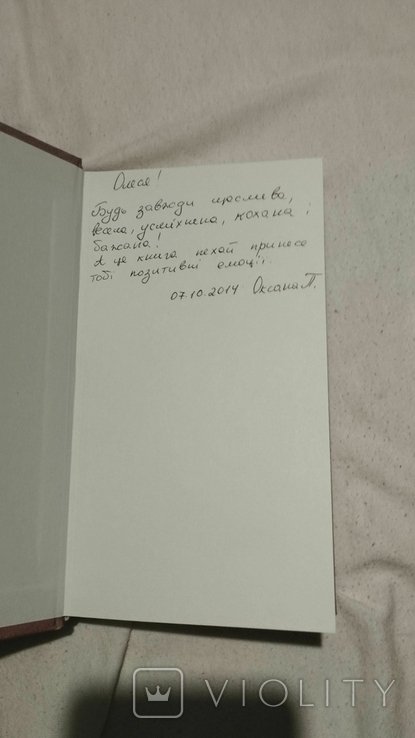 Олеся!
Будь завжди щаслива,
весела, усміхнена, кохана і
бажана!
А ця книга нехай принесе
тобі позитивні емоції.
07.10.2014 Оксана П.
VIOLITY